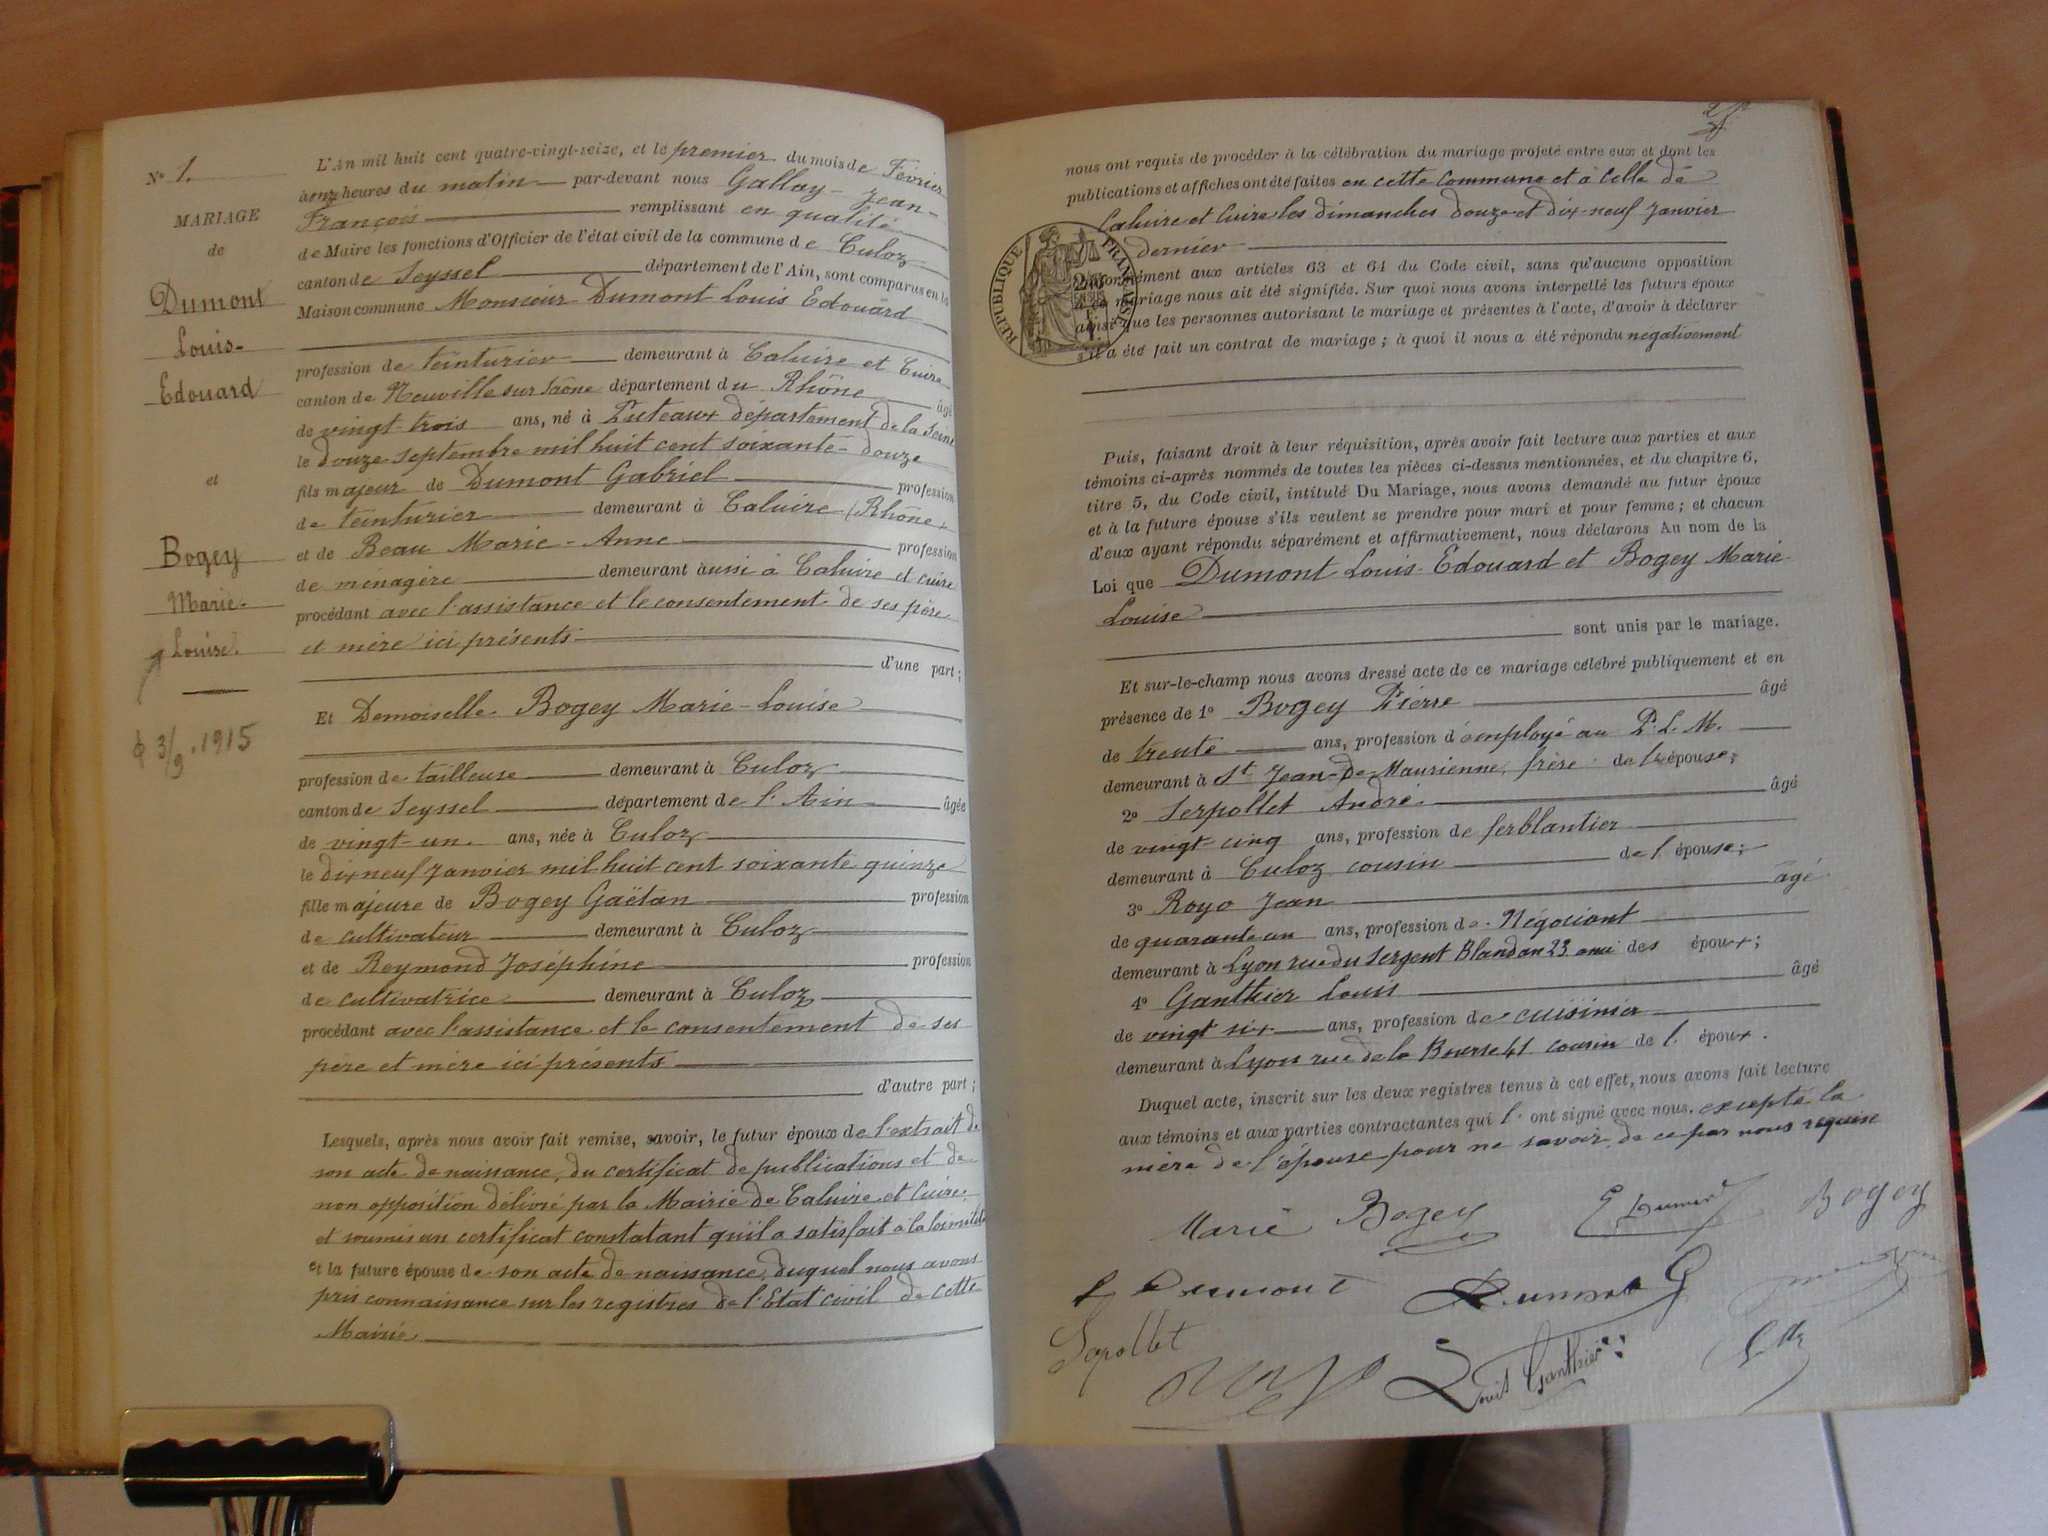 N° 1.
MARIAGE
de
Dumont
Louis-
Edouard
et
Bogey
Marie-
Louise.
3/9.1915
L'An mil huit cent quatre-vingt-seize, et le premier du mois de Février
à onze heures du matin par-devant nous Gallay Jean-
François remplissant en qualité
de Maire les fonctions d'Officier de l'état civil de la commune de Culoz
canton de Seyssel département de l'Ain, sont comparus en la
Maison commune Monsieur Dumont Louis Edouard
profession de teinturier demeurant à Caluire et Cuire
canton de Neuville sur Saône département du Rhône âgé
de vingt trois ans, né à Puteaux département de la Seine
le douze septembre mil huit cent soixante-douze
fils majeur de Dumont Gabriel profession
de teinturier demeurant à Caluire (Rhône)
et de Beau Marie-Anne profession
de ménagère demeurant aussi à Caluire et cuire
procédant avec l'assistance et le consentement de ses père
et mère ici présents
d'une part;
Et Demoiselle Bogey Marie-Louise
profession de tailleuse demeurant à Culoz
canton de Seyssel département de l'Ain âgée
de vingt-un ans, née à Culoz
le dix neuf Janvier mil huit cent soixante quinze
fille majeure de Bogey Gaëtan profession
de cultivateur demeurant à Culoz
et de Reymond Joséphine profession
de cultivatrice demeurant à Culoz
procédant avec l'assistance et le consentement de ses
père et mère ici présents
d'autre part;
Lesquels, après nous avoir fait remise, savoir, le futur époux de l'extrait de
son acte de naissance, du certificat de publications et de
non opposition délivré par la Mairie de Caluire et Cuire
et soumis un certificat constatant qu'il a satisfait à la loi militaire
et la future épouse de son acte de naissance, duquel nous avons
pris connaissance sur les registres de l'Etat civil de cette
Mairie
nous ont requis de procéder à la célébration du mariage projeté entre eux et dont les
publications et affiches ont été faites en cette commune et à celle de
Caluire et Cuire les dimanches douze et dix-neuf Janvier
dernier
RÉPUBLIQUE FRANÇAISE
conformément aux articles 63 et 64 du Code civil, sans qu'aucune opposition
à ce mariage nous ait été signifiée. Sur quoi nous avons interpellé les futurs époux
ainsi que les personnes autorisant le mariage et présentes à l'acte, d'avoir à déclarer
s'il a été fait un contrat de mariage; à quoi il nous a été répondu négativement
Puis, faisant droit à leur réquisition, après avoir fait lecture aux parties et aux
témoins ci-après nommés de toutes les pièces ci-dessus mentionnées, et du chapitre 6,
titre 5, du Code civil, intitulé Du Mariage, nous avons demandé au futur époux
et à la future épouse s'ils veulent se prendre pour mari et pour femme; et chacun
d'eux ayant répondu séparément et affirmativement, nous déclarons Au nom de la
Loi que Dumont Louis Edouard et Bogey Marie
Louise
sont unis par le mariage.
Et sur-le-champ nous avons dressé acte de ce mariage célébré publiquement et en
présence de 1° Bogey Pierre âgé
de trente ans, profession d'employé au P.L.M.
demeurant à St Jean-de-Maurienne, frère de l'épouse;
2° Serpollet André âgé
de vingt-cinq ans, profession de ferblantier
demeurant à Culoz cousin de l'épouse;
3° Royo Jean âgé
de quarante un ans, profession de Négociant
demeurant à Lyon rue du Sergent Blandan 23 ami des époux;
4° Ganthier Louis âgé
de vingt six ans, profession de cuisinier
demeurant à Lyon rue de la Bourse 41 cousin de l'époux.
Duquel acte, inscrit sur les deux registres tenus à cet effet, nous avons fait lecture
aux témoins et aux parties contractantes qui l'ont signé avec nous, excepté la
mère de l'épouse pour ne savoir, de ce par nous requise
Marie Bogey E Dumont Bogey
L Dumont Dumont G
Serpollet
Royo Louis Ganthier